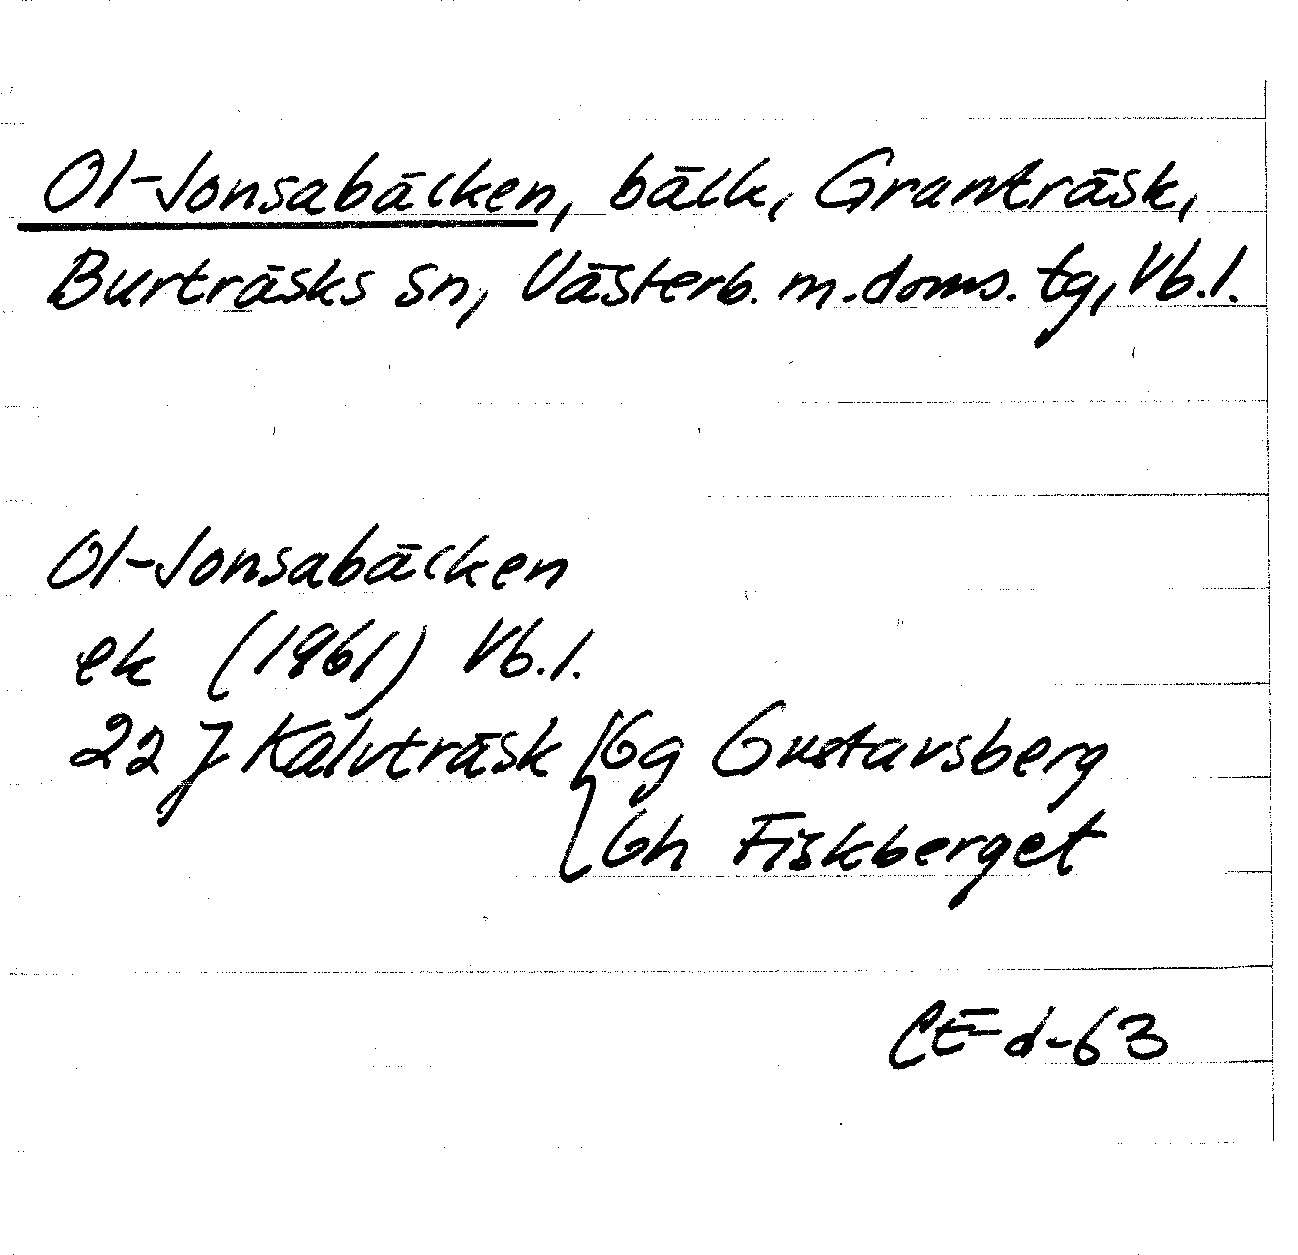 Ol-Jonsabäcken, bäck, Granträsk,
Burträsks sn, Västerb. m. doms. tg, Vb. l.
Ol-Jonsabäcken
ek (1961) Vb. l.
22 J Kalvträsk { Gg Gustavsberg
Gh Fiskberget
CE-d-63